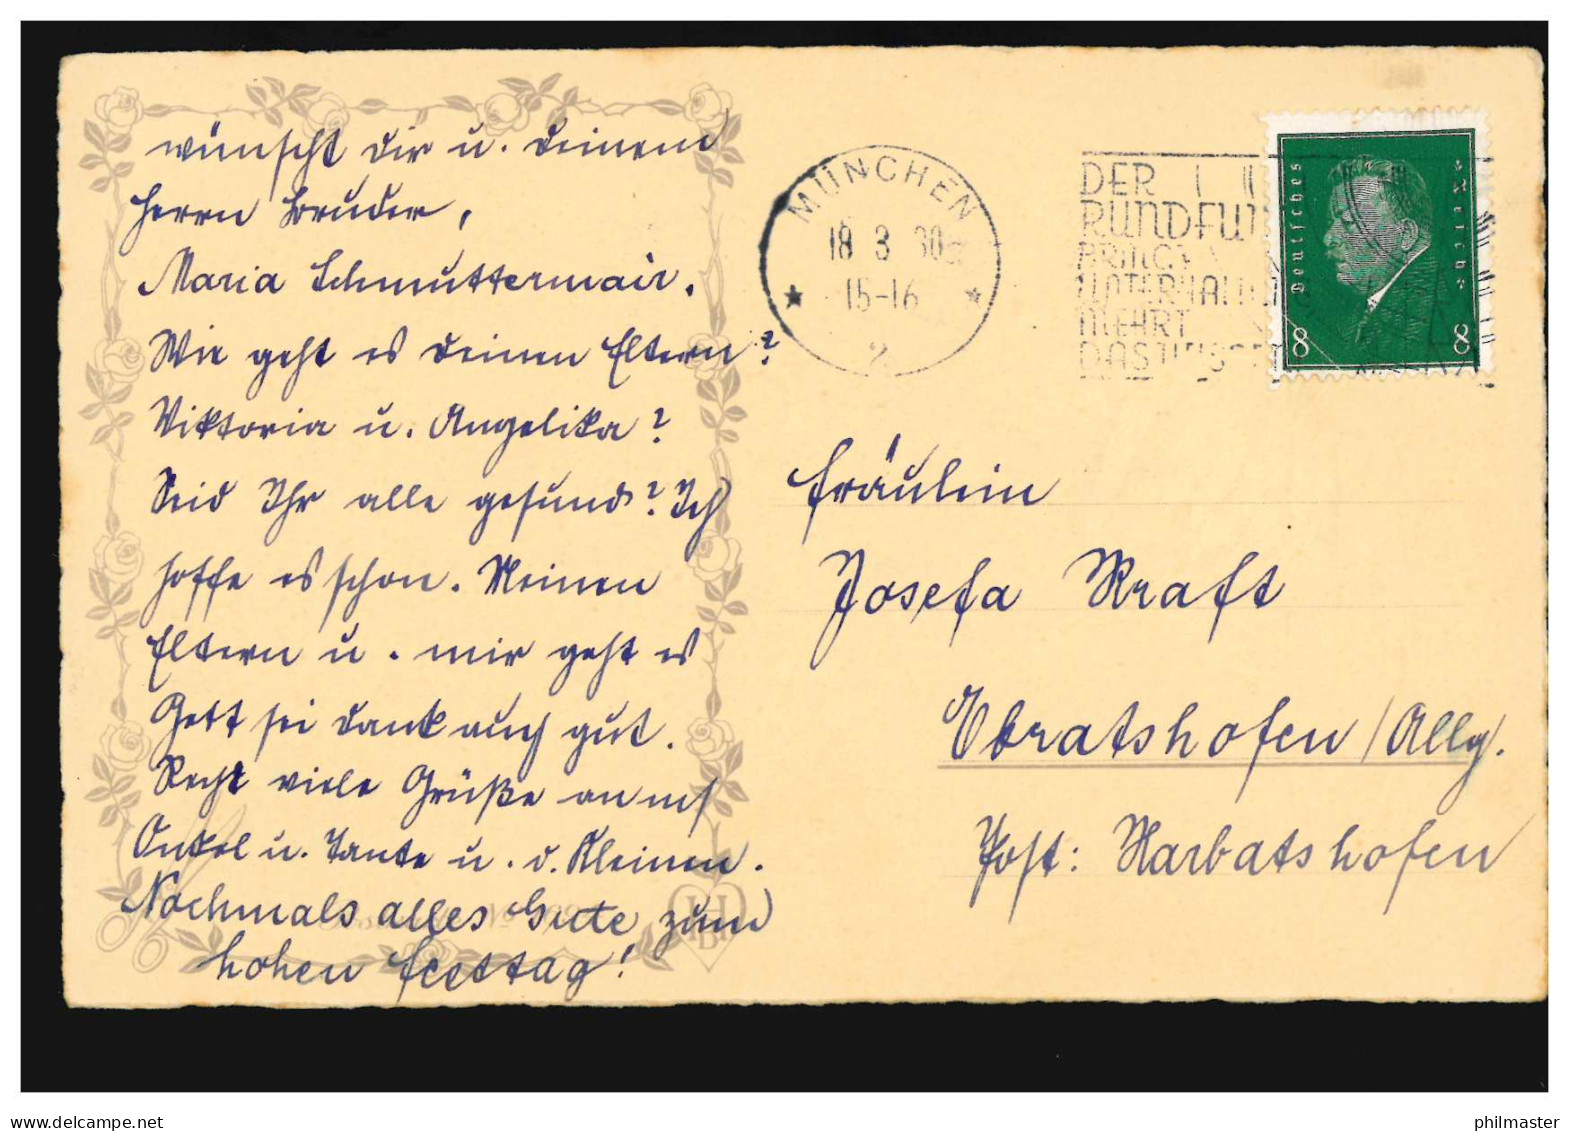 wünscht dir u. deinem
Herrn Bruder,
Maria Schmuttermair.
Wie geht es deinen Eltern?
Viktoria u. Angelika?
Seid Ihr alle gesund? Ich
hoffe es schon. Meinen
Eltern u. mir geht es
Gott sei dank auch gut.
Recht viele Grüße an
Onkel u. Tante u. d. Kleinen.
Nochmals alles Gute zum
hohen Festtag!
MÜNCHEN
18 3 30
15-16
2
DER
RUNDFUN
BRINGT
UNTERHALTU
MEHRT
DAS
Deutsches Reich
8 8
Fräulein
Josefa Kraft
Ebratshofen/Allg.
Post: Harbatshofen
HB
www.delcampe.net
philmaster